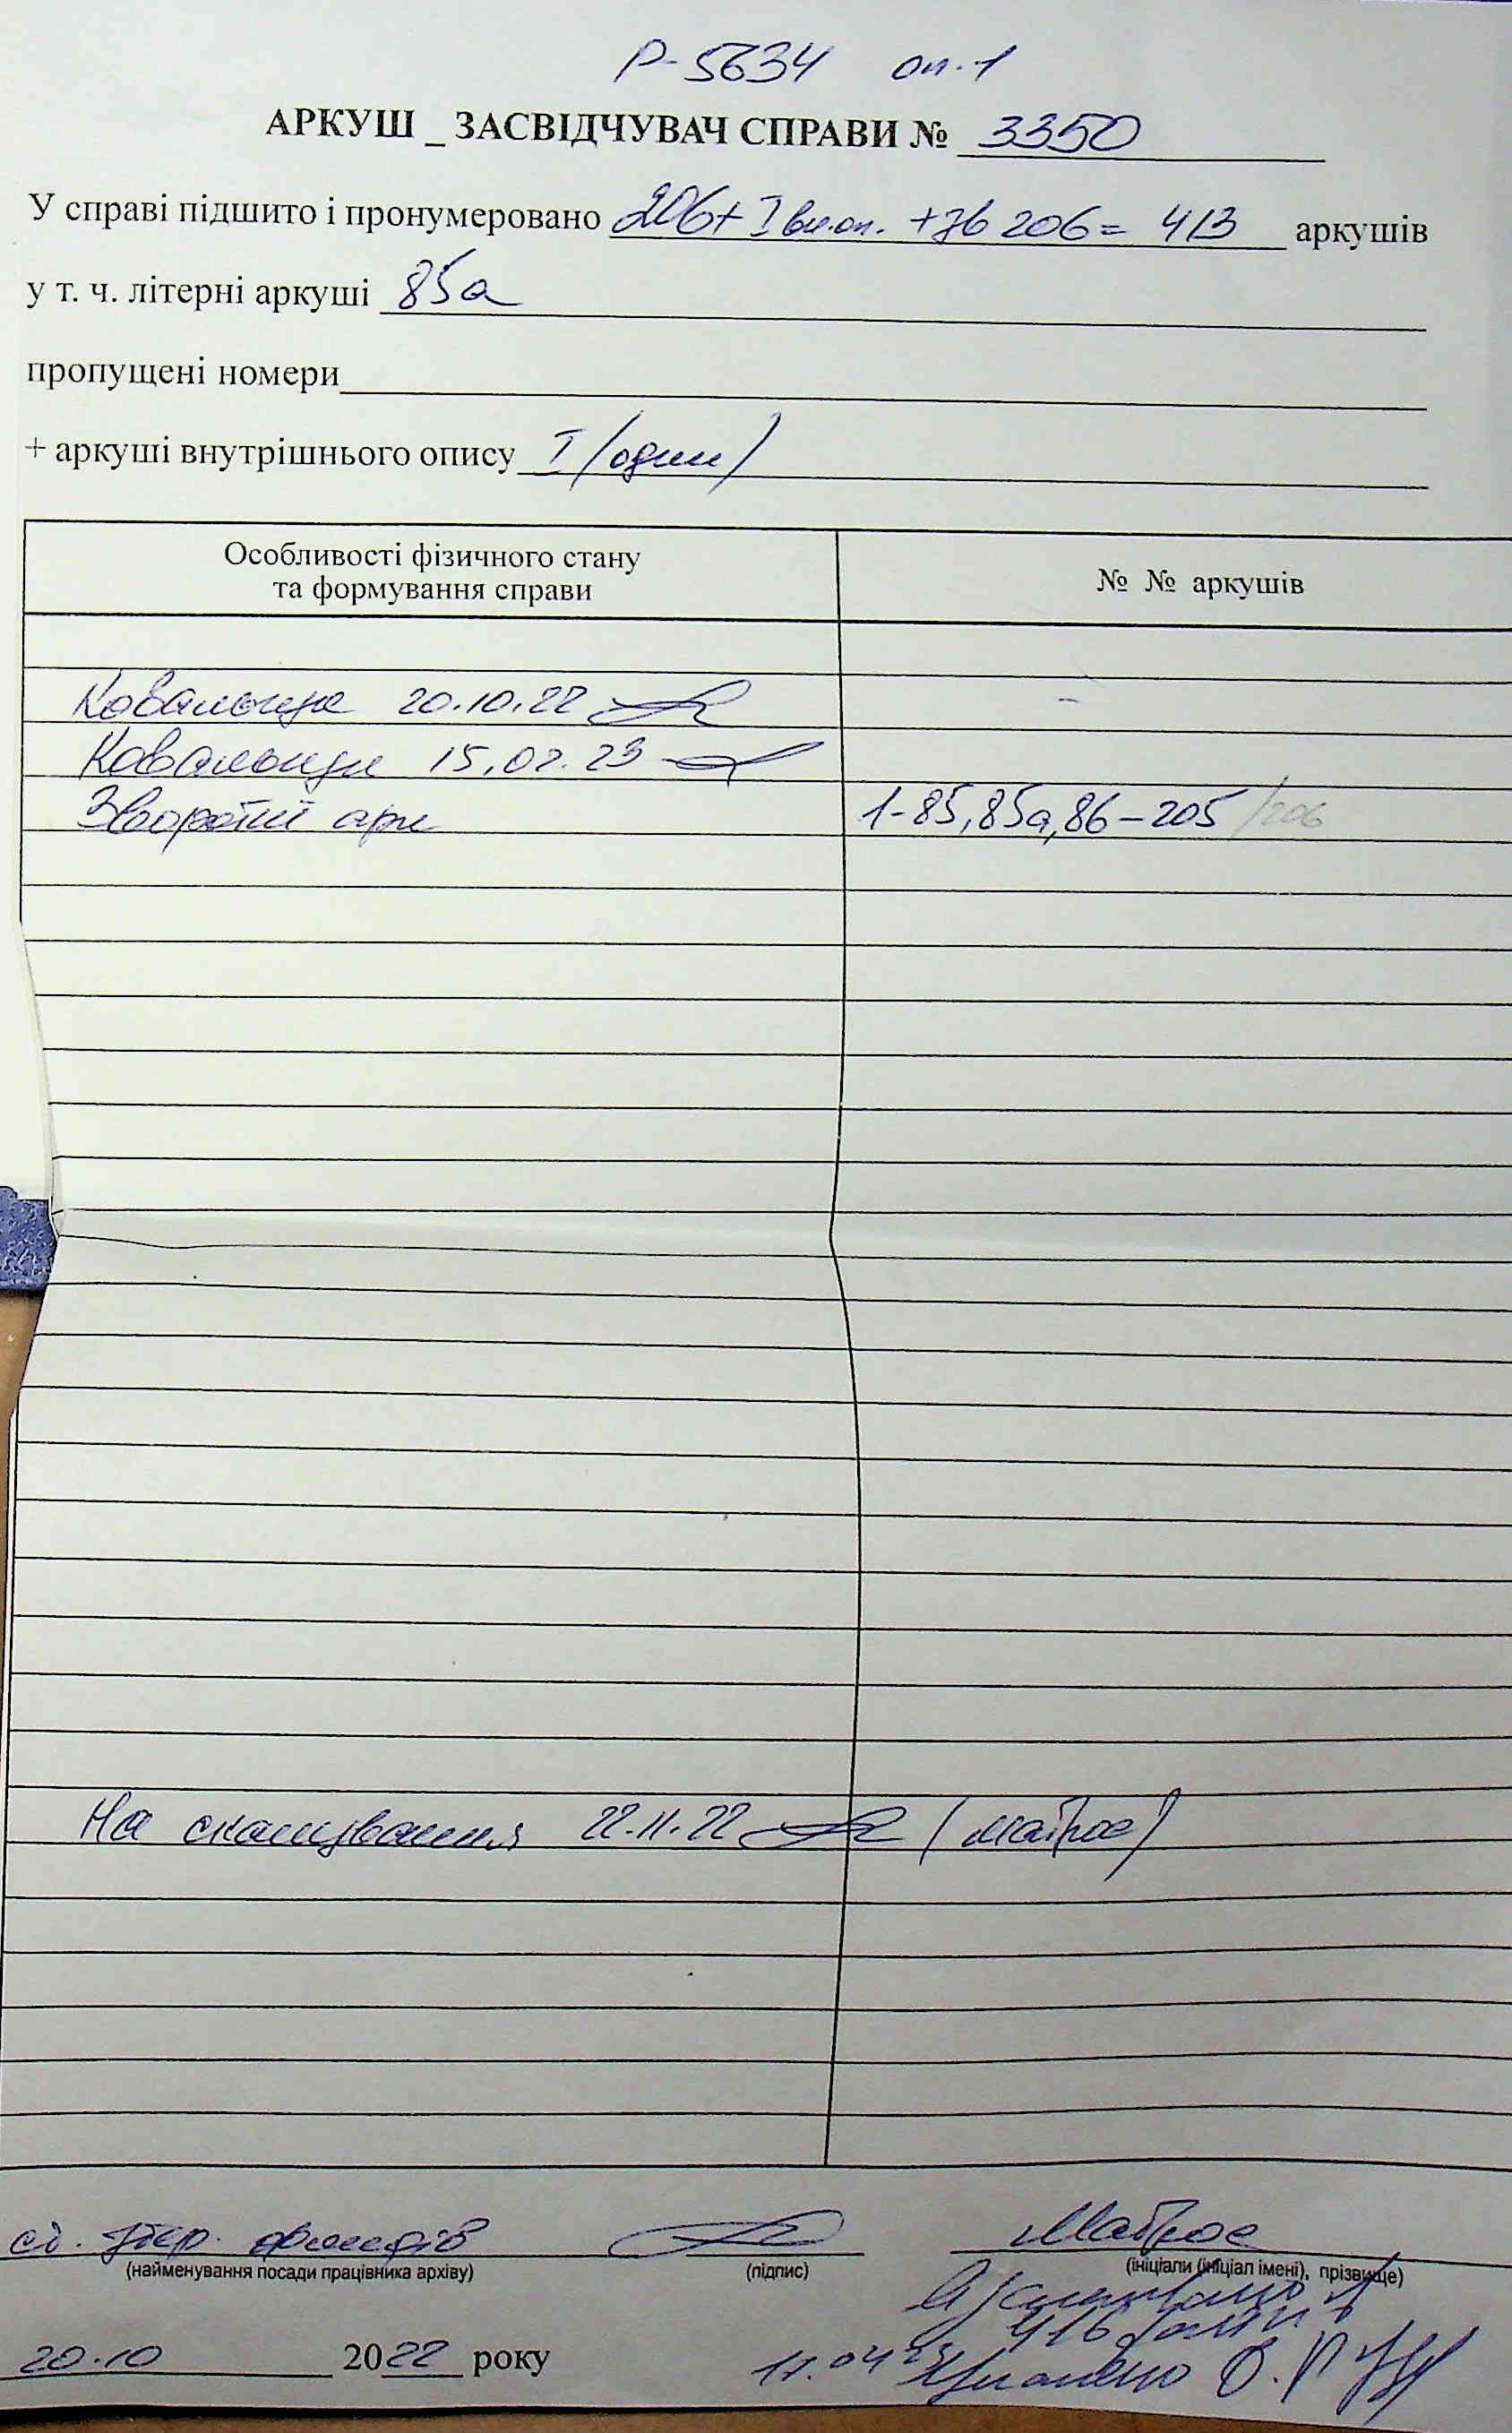 Р-5634 оп.1
АРКУШ _ ЗАСВІДЧУВАЧ СПРАВИ № 3350
У справі підшито і пронумеровано 206+ I вн.оп. + зв 206 = 413 аркушів
у т. ч. літерні аркуші 85а
пропущені номери
+ аркуші внутрішнього опису I (один)
Особливості фізичного стану
та формування справи
№ № аркушів
20.10.22
15.02.23
Зворотні арк 1-85, 85а, 86-205 /206
На сканування 22.11.22 (Матрос)
зб. фондів Матрос
(найменування посади працівника архіву) (підпис) (ініціали (ініціал імені), прізвище)
416
20.10 2022 року
11.04.23